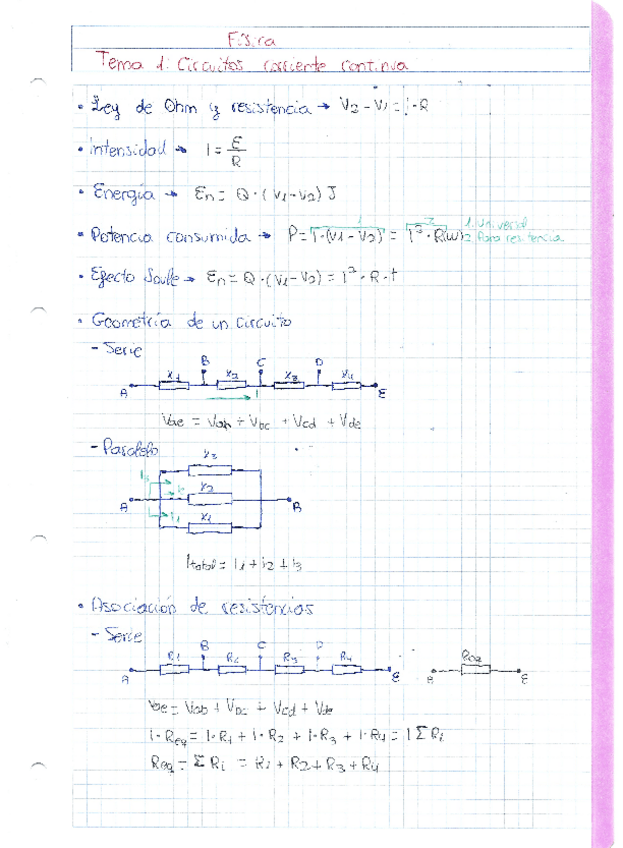 Física
Tema 1: Circuitos corriente continua
• Ley de Ohm y resistencia → V2 - V1 = I · R
• Intensidad → I = E/R
• Energía → En = Q · (V1 - V2) J
• Potencia consumida → P = I · (V1 - V2) = I² · R (W)
1 2 1. Universal
2. Para resistencia
• Efecto Joule → En = Q · (V1 - V2) = I² · R · t
• Geometría de un circuito
- Serie
A X1 B X2 C X3 D X4 E
i
Vae = Vab + Vbc + Vcd + Vde
- Paralelo
X3
i3
A i2 X2 B
i1 X1
Itotal = i1 + i2 + i3
• Asociación de resistencias
- Serie
A R1 B R2 C R3 D R4 E
A E
Vae = Vab + Vbc + Vcd + Vde
I · Req = I · R1 + I · R2 + I · R3 + I · R4 = I Σ Ri
Req = Σ Ri = R1 + R2 + R3 + R4